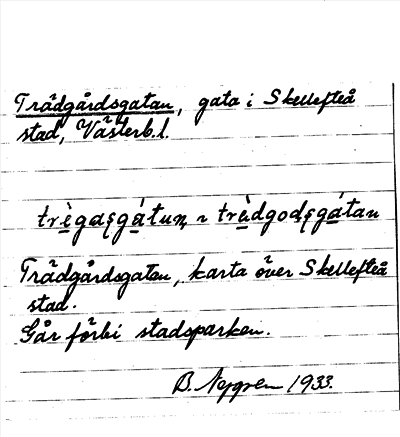 Trädgårdsgatan, gata i Skellefteå
stad, Västerb.l.
trègasgátun, ~ trèdgodsgátan
Trädgårdsgatan, karta över Skellefteå
stad.
Går förbi stadsparken.
B. 1933.